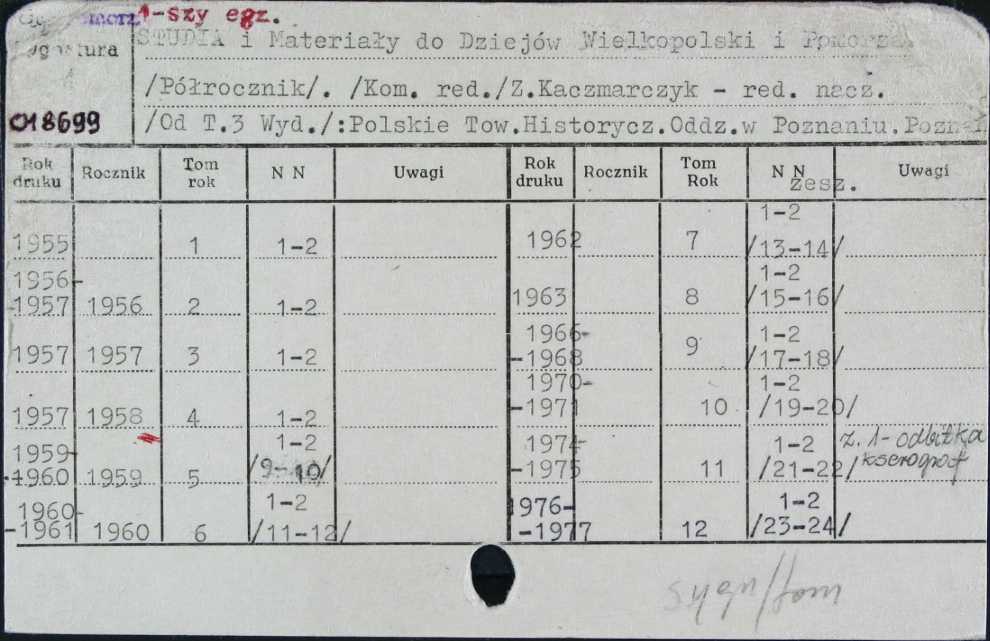 1-szy egz.
STUDIA i Materiały do Dziejów Wielkopolski i Pomorza.
/Półrocznik/. /Kom. red./Z.Kaczmarczyk - red. nacz.
018699
/Od T.3 Wyd./:Polskie Tow.Historycz.Oddz.w Poznaniu.Poznań
Rok druku Rocznik Tom rok N N Uwagi Rok druku Rocznik Tom Rok N N zesz. Uwagi
1955 1 1-2 1962 7 1-2 /13-14/
1956-1957 1956 2 1-2 1963 8 1-2 /15-16/
1957 1957 3 1-2 1966-1968 9 1-2 /17-18/
1957 1958 4 1-2 1970-1971 10 1-2 /19-20/
1959-1960 1959 5 1-2 /9-10/ 1974-1975 11 1-2 /21-22/ z. 1- odbitka kserograf
1960-1961 1960 6 1-2 /11-12/ 1976-1977 12 1-2 /23-24/
sygn/tom